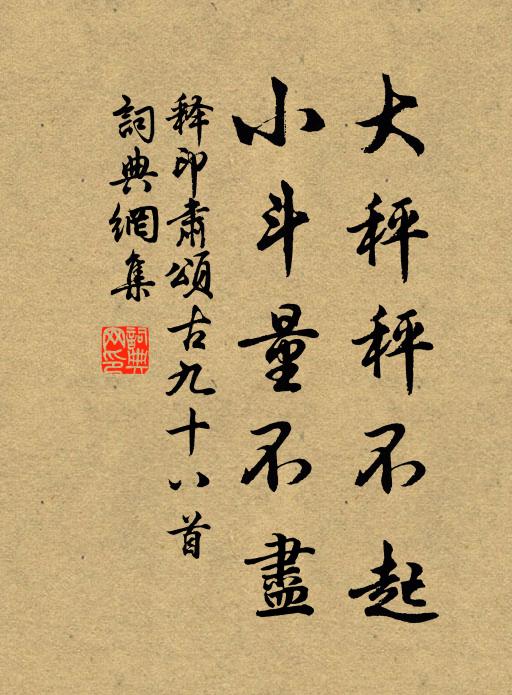 大秤秤不起
小斗量不盡
释印肅頌古九十八首
詞典網集
詞典网印